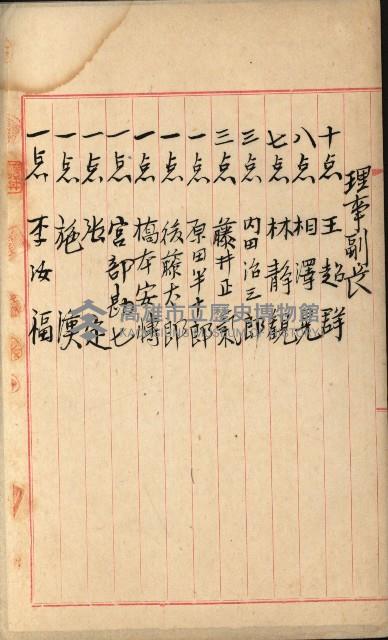 理事副長
十点 王超群
八点 相澤光
七点 林静観
三点 内田治三郎
三点 藤井正氣
一点 原田半十郎
一点 後藤大郎
一点 橋本安博
一点 宮部勘七
一点 張走
一点 施渙
一点 李汝福
高雄市立歷史博物館